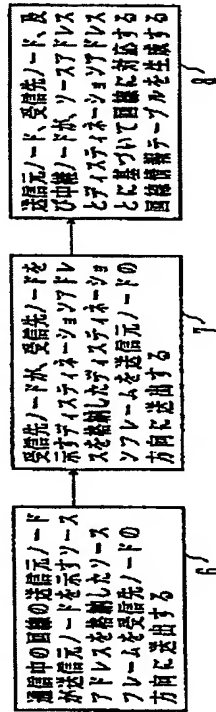 通信中の回線の送信元ノード
が送信元ノードを示すソース
アドレスを格納したソース
フレームを受信先ノードの
方向に送出する
6
受信先ノードが、受信先ノードを
示すディスティネーションアドレ
スを格納したディスティネーショ
ンフレームを送信元ノードの
方向に送出する
7
送信元ノード、受信先ノード、及
び中継ノードが、ソースアドレス
とディスティネーションアドレス
とに基づいて回線に対応する
回線情報テーブルを生成する
8